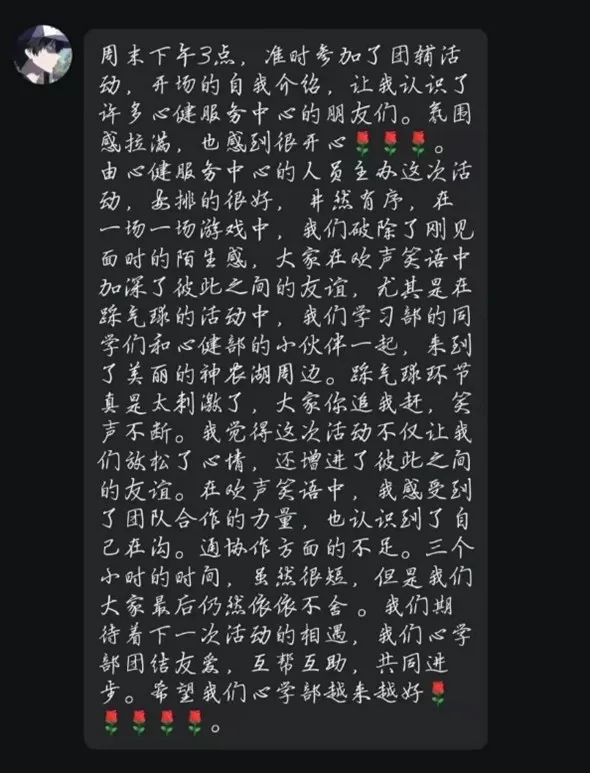 周末下午3点，准时参加了团辅活
动，开场的自我介绍，让我认识了
许多心健服务中心的朋友们。氛围
感拉满，也感到很开心🌹🌹🌹。
由心健服务中心的人员主办这次活
动，安排的很好，井然有序，在
一场一场游戏中，我们破除了刚见
面时的陌生感，大家在欢声笑语中
加深了彼此之间的友谊，尤其是在
踩气球的活动中，我们学习部的同
学们和心健部的小伙伴一起，来到
了美丽的神农湖周边。踩气球环节
真是太刺激了，大家你追我赶，笑
声不断。我觉得这次活动不仅让我
们放松了心情，还增进了彼此之间
的友谊。在欢声笑语中，我感受到
了团队合作的力量，也认识到了自
己在沟。通协作方面的不足。三个
小时的时间，虽然很短，但是我们
大家最后仍然依依不舍。我们期
待着下一次活动的相遇，我们心学
部团结友爱，互帮互助，共同进
步。希望我们心学部越来越好🌹
🌹🌹🌹🌹。